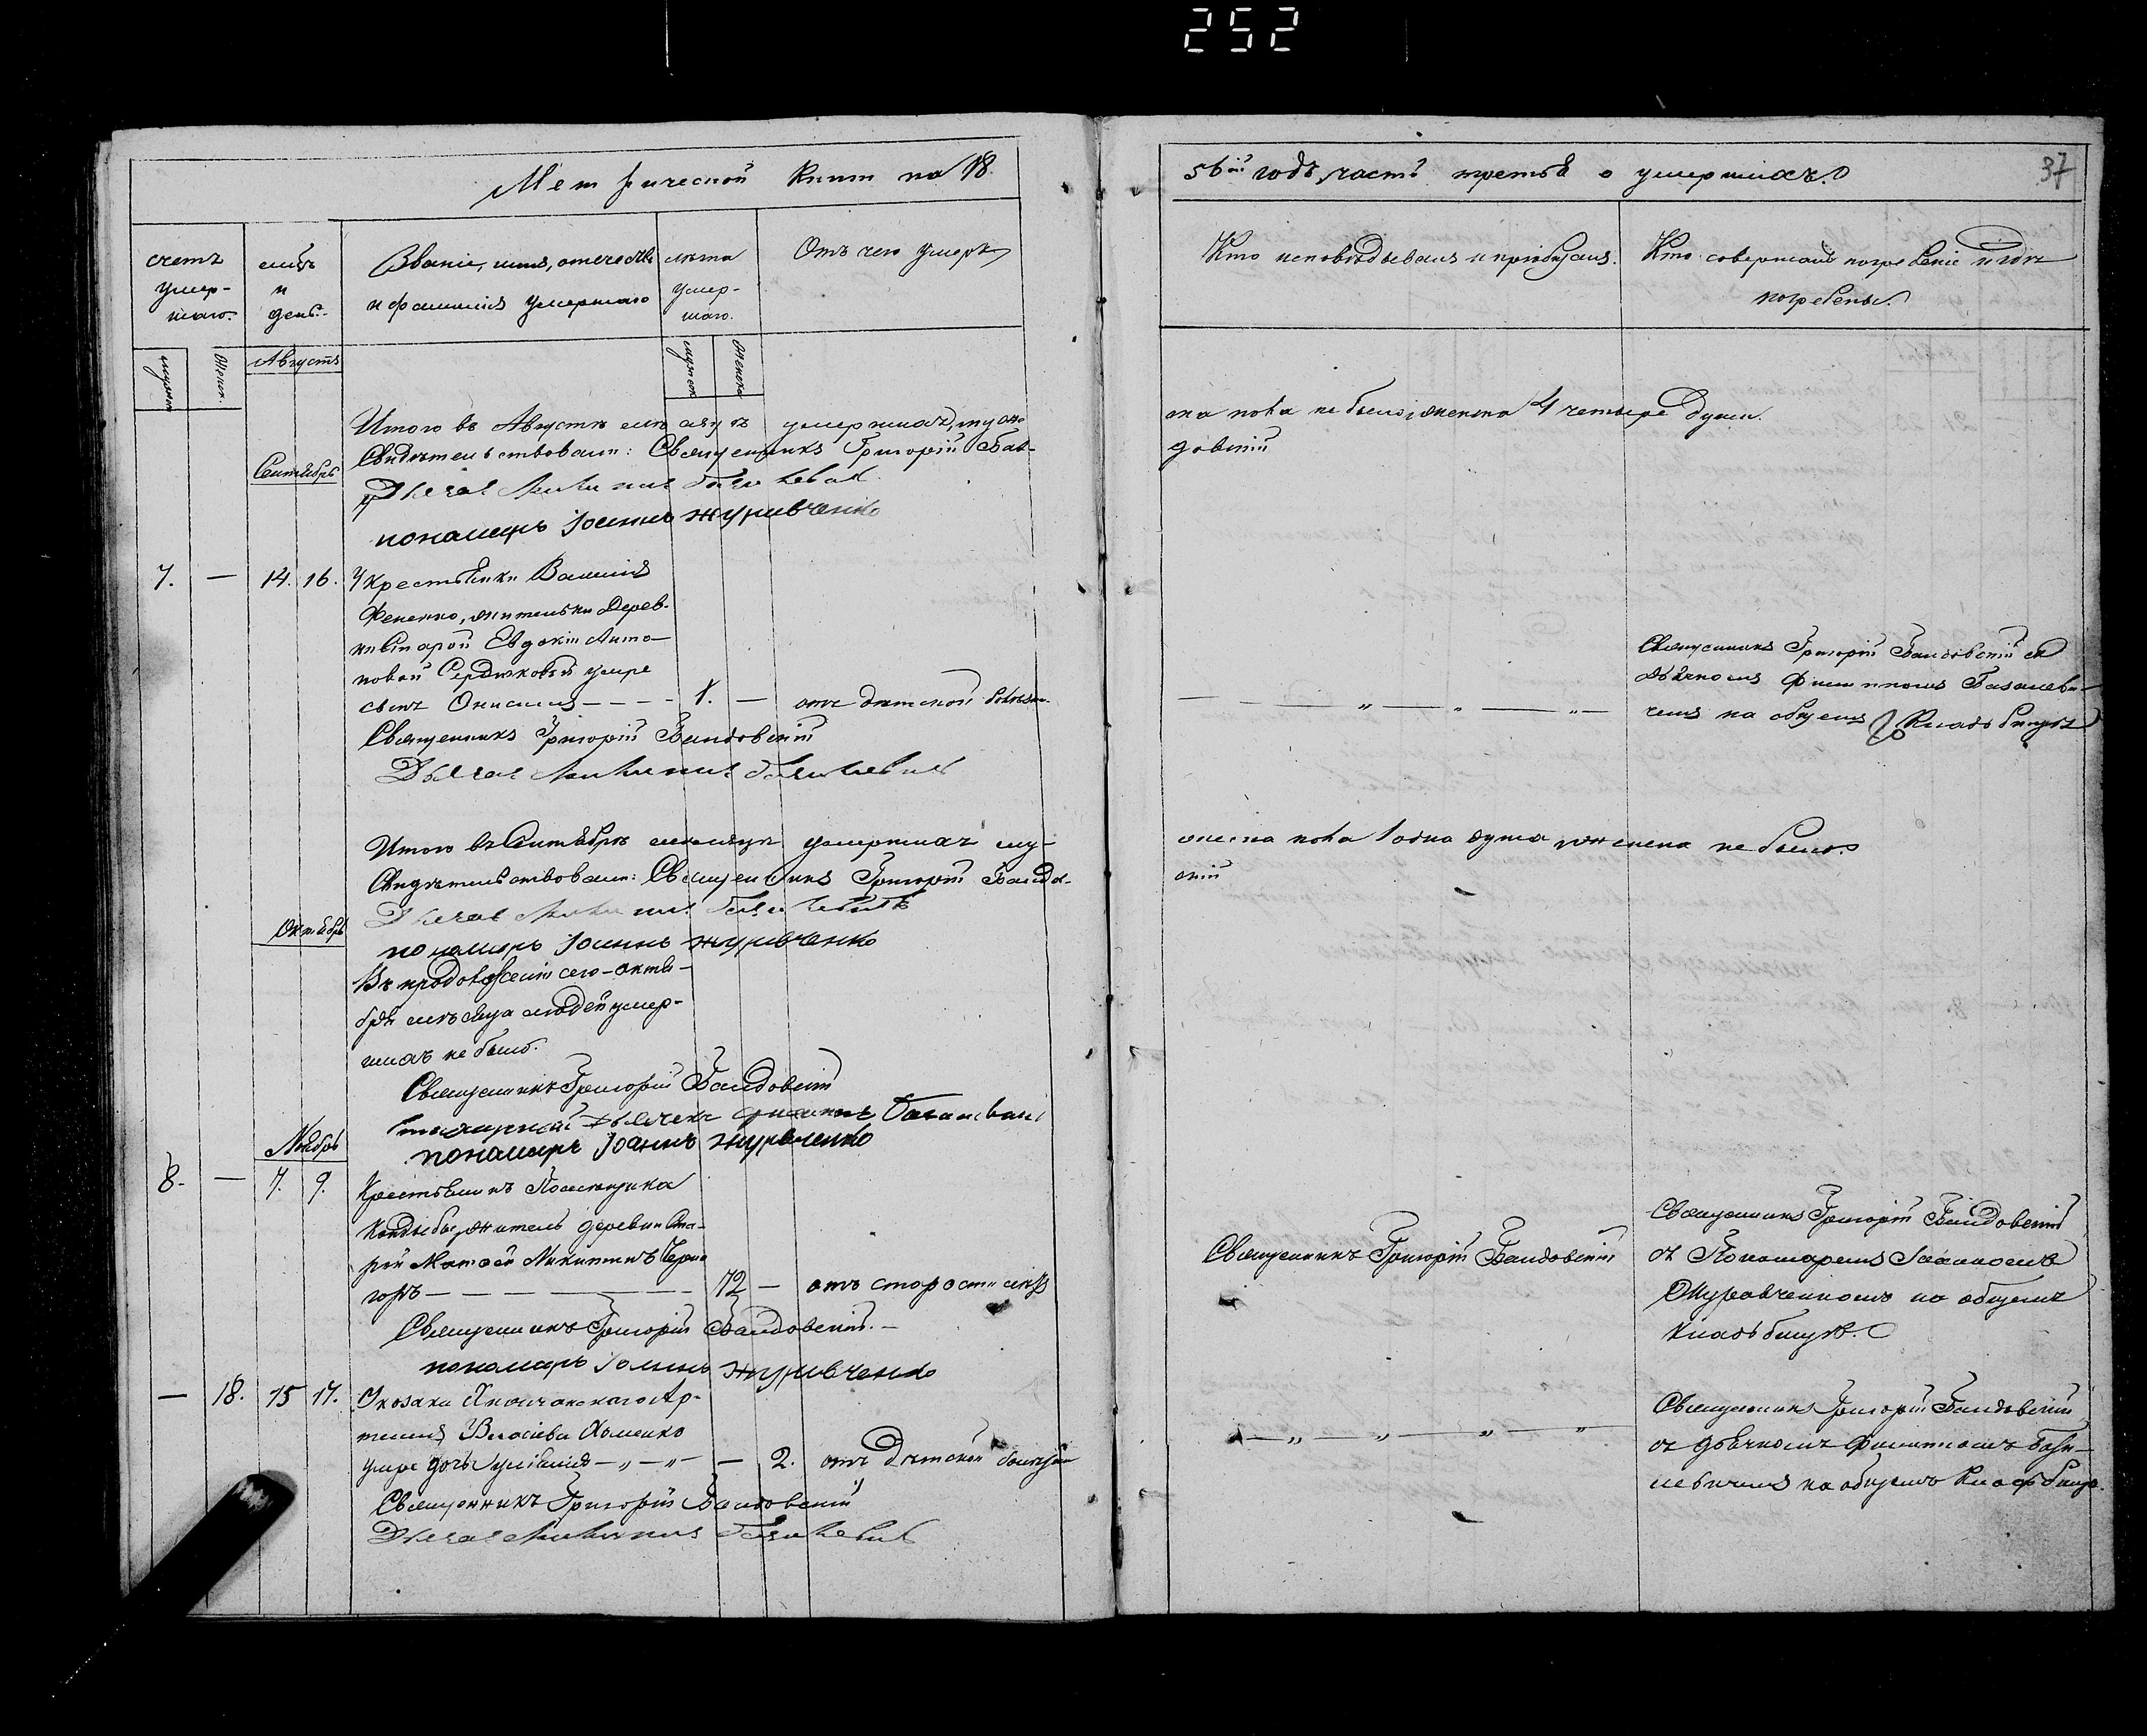 252
Метрической Книги на 18
56ой годъ, часть третья о умершихъ.
37
счетъ умер-
шаго.
мѣсяцъ
и
день.
Званіе, имя, отечество
и фамилія умершаго
лѣта
умер-
шаго.
Отъ чего умеръ
Кто исповѣдывалъ и пріобщалъ.
Кто совершалъ погребеніе и гдѣ
погребены.
Августъ
Итого въ Августѣ мѣсяцѣ умершихъ, муже
ска пола не было, женска 4 четыре души.
Свидѣтельствовали: Священникъ Григорій Бан-
довскій
Сентябрь
пономарь Іоаннъ Журавченко
7. — 14. 16. У крестьянки
жительки Дерев-
ни Старой Евдокіи Анто-
новой Сердюковой умре
сынъ Онисимъ — 1. — отъ дѣтской болѣзни
Священникъ Григорій Бандовскій съ
дьячкомъ Филиппомъ Базилеви-
чемъ на общемъ Кладбищѣ
Священникъ Григорій Бандовскій
Итого въ Сентябрѣ мѣсяцѣ умершихъ му-
жеска пола 1 одна душа, женска не было.
Свидѣтельствовали: Священникъ Григорій Бандов-
скій
Октябрь
пономарь Іоаннъ Журавченко
Въ продолженіи сего октя-
бря мѣсяца людей умер-
шихъ не было.
Священникъ Григорій Бандовскій
Дьячекъ Филиппъ Базилевичъ
пономарь Іоаннъ Журавченко
Ноябрь
8. — 7. 9. Крестьянинъ Помѣщика
житель деревни Ста-
рой Матѳей Никитинъ
72 — отъ старости лѣтъ
Священникъ Григорій Бандовскій
Священникъ Григорій Бандовскій
съ Пономаремъ Іоанномъ
Журавченкомъ на общемъ
кладбищѣ.
Священникъ Григорій Бандовскій.
пономарь Іоаннъ Журавченко
— 18. 15 17. У козака
Власіева Хоменко
умре дочь Уліанія — — 2. отъ дѣтской болѣзни
Священникъ Григорій Бандовскій
съ дьячкомъ Филиппомъ Бази-
левичемъ на общемъ Кладбищѣ.
Священникъ Григорій Бандовскій